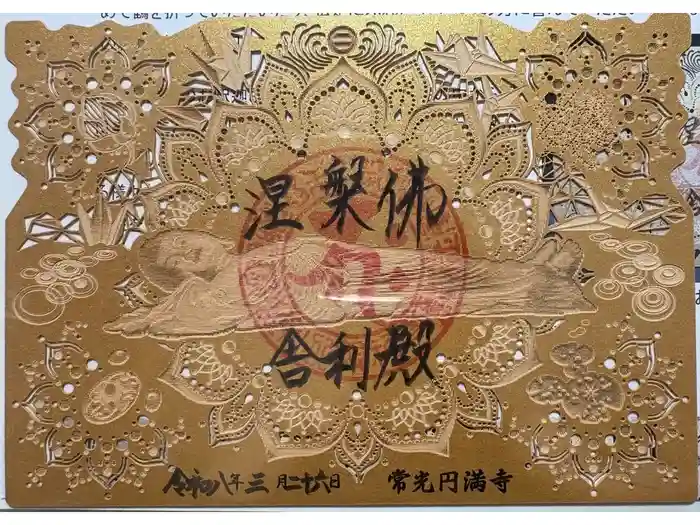 涅槃佛
舎利殿
令和八年三月二十六日
常光円満寺